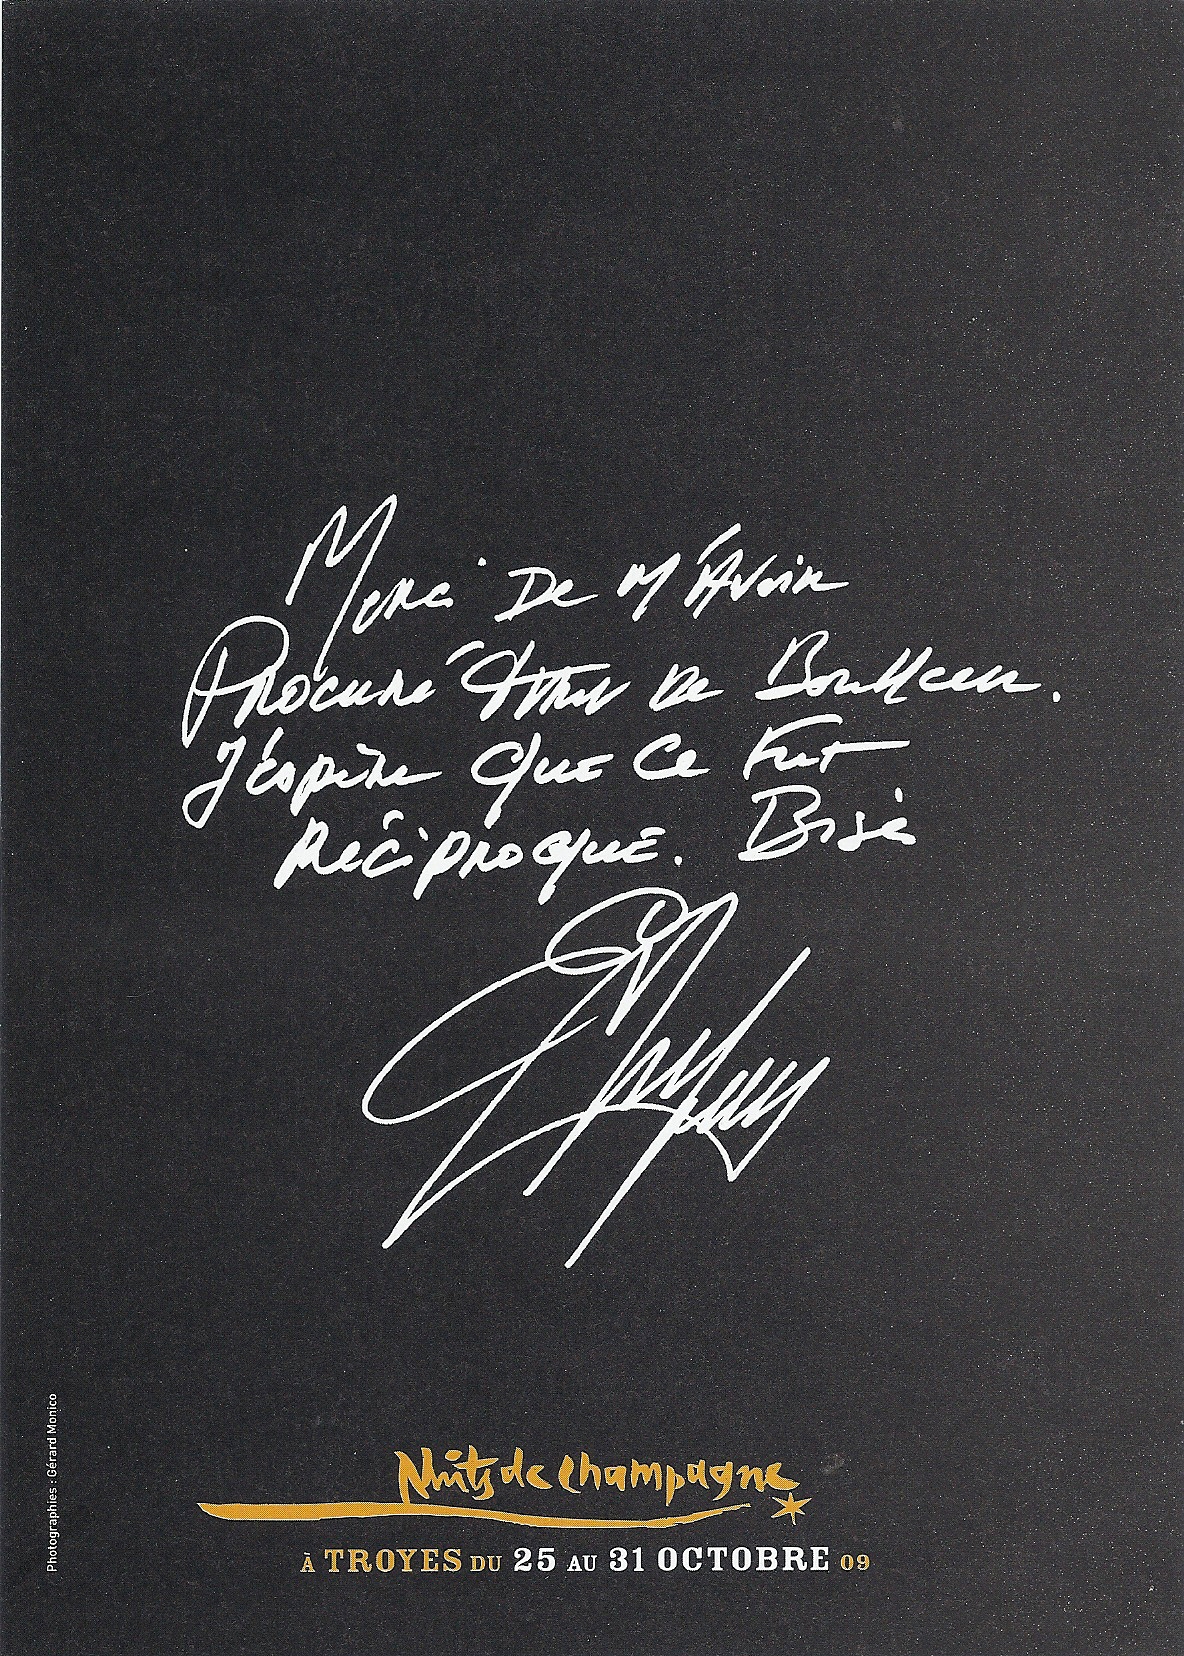 Merci De M'Avoir
Procuré De Bonheur.
J'éspère Que Ce Fut
Réciproque. Bise
Photographies : Gérard Monico
Nuits de champagne
À TROYES DU 25 AU 31 OCTOBRE 09